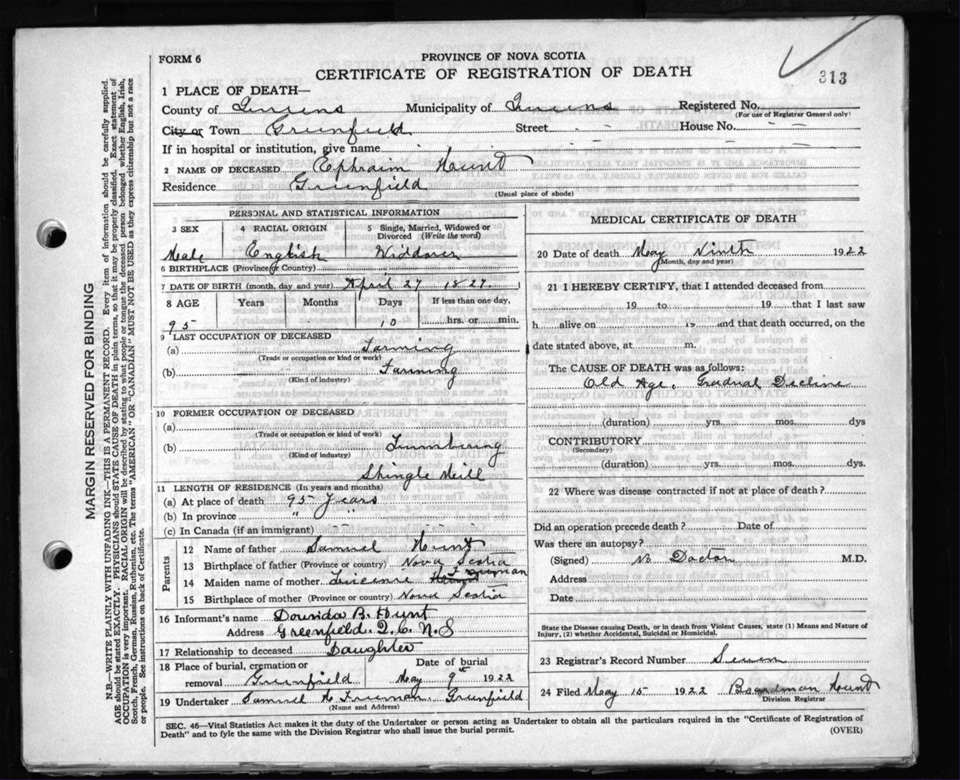 313
FORM 6
PROVINCE OF NOVA SCOTIA
CERTIFICATE OF REGISTRATION OF DEATH
1 PLACE OF DEATH—
County of Queens Municipality of Queens Registered No.
(For use of Registrar General only)
City or Town Greenfield Street House No.
If in hospital or institution, give name
2 NAME OF DECEASED Ephraim Hunt
Residence Greenfield
(Usual place of abode)
PERSONAL AND STATISTICAL INFORMATION
3 SEX 4 RACIAL ORIGIN 5 Single, Married, Widowed or Divorced (Write the word)
Male English Widdower
6 BIRTHPLACE (Province or Country)
7 DATE OF BIRTH (month, day and year) April 27 1827
8 AGE Years Months Days If less than one day,
95 10 hrs. or min.
9 LAST OCCUPATION OF DECEASED
(a) Farming
(Trade or occupation or kind of work)
(b) Farming
(Kind of industry)
10 FORMER OCCUPATION OF DECEASED
(a)
(Trade or occupation or kind of work)
(b) Lumbering
(Kind of industry)
Shingle Mill
11 LENGTH OF RESIDENCE (In years and months)
(a) At place of death 95 Years
(b) In province " "
(c) In Canada (if an immigrant)
Parents
12 Name of father Samuel Hunt
13 Birthplace of father (Province or country) Nova Scotia
14 Maiden name of mother Freeman
15 Birthplace of mother (Province or country) Nova Scotia
16 Informant's name B. Hunt
Address Greenfield. Q. C. N.S
17 Relationship to deceased Daughter
18 Place of burial, cremation or Date of burial
removal Greenfield May 9th 1922
19 Undertaker Samuel H Freeman Greenfield
(Name and Address)
MEDICAL CERTIFICATE OF DEATH
20 Date of death May Ninth 1922
(Month, day and year)
21 I HEREBY CERTIFY, that I attended deceased from
19 to 19 that I last saw
h alive on 19 and that death occurred, on the
date stated above, at m.
The CAUSE OF DEATH was as follows:
Old Age, Gradual Decline
(duration) yrs. mos. dys
CONTRIBUTORY
(Secondary)
(duration) yrs. mos. dys.
22 Where was disease contracted if not at place of death?
Did an operation precede death? Date of
Was there an autopsy?
(Signed) No Doctor M.D.
Address
Date
State the Disease causing Death, or in death from Violent Causes, state (1) Means and Nature of Injury, (2) whether Accidental, Suicidal or Homicidal.
23 Registrar's Record Number Seven
24 Filed May 15 1922 Boardman Hunt
Division Registrar
SEC. 46—Vital Statistics Act makes it the duty of the Undertaker or person acting as Undertaker to obtain all the particulars required in the "Certificate of Registration of
Death" and to fyle the same with the Division Registrar who shall issue the burial permit.
(OVER)
MARGIN RESERVED FOR BINDING
N.B.—WRITE PLAINLY WITH UNFADING INK—THIS IS A PERMANENT RECORD. Every item of information should be carefully supplied.
AGE should be stated EXACTLY. PHYSICIANS should STATE CAUSE OF DEATH in plain terms, so that it may be properly classified. Exact statement of
OCCUPATION is very important. RACIAL ORIGIN will be described by stating to what people or tongue the deceased person belonged whether English, Irish,
Scotch, French, German, Russian, Ruthenian, etc. The terms "AMERICAN" OR "CANADIAN" MUST NOT BE USED as they express citizenship but not a race
or people. See instructions on back of Certificate.